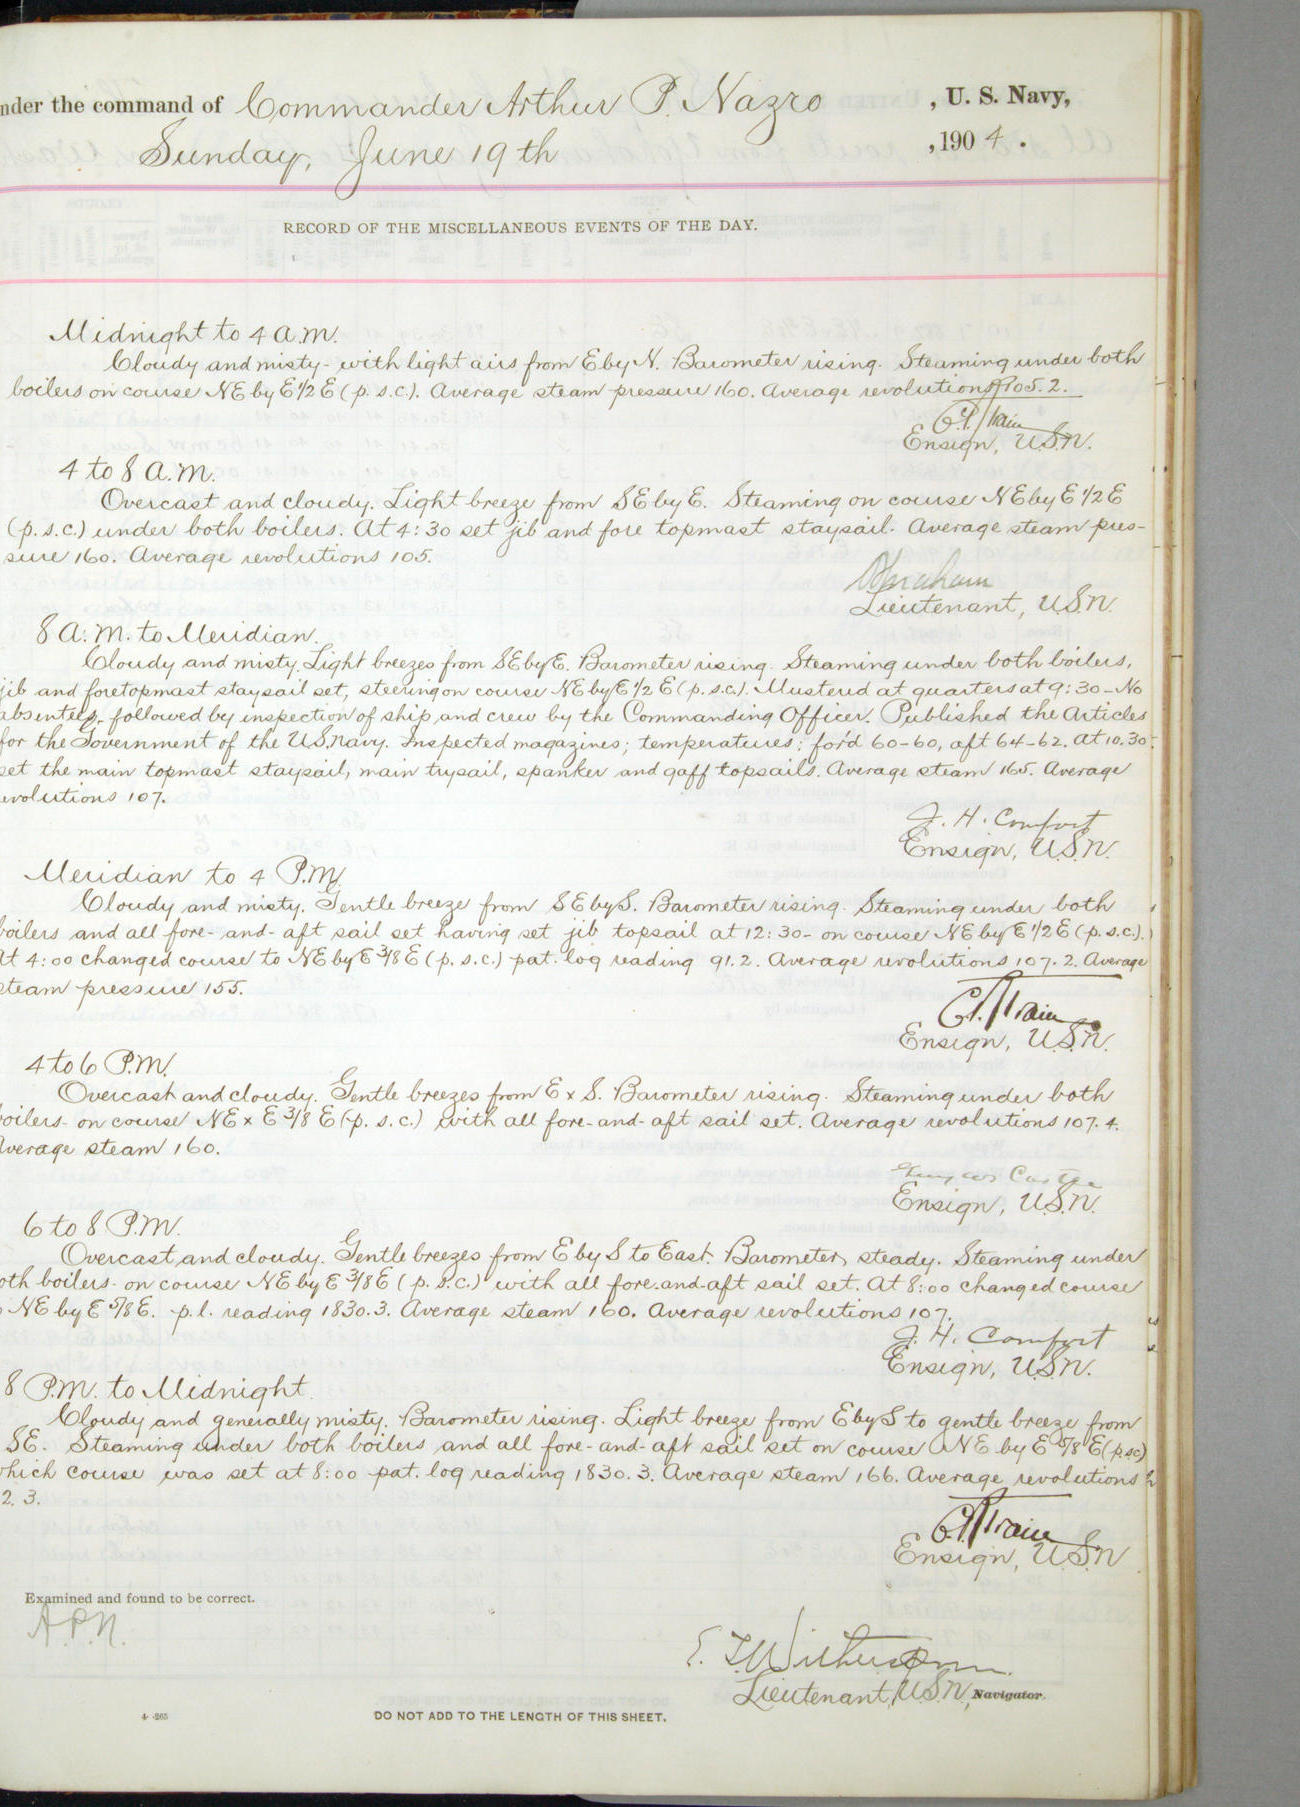 nder the command of Commander Arthur P. Nazro , U. S. Navy,
Sunday, June 19th , 190 4 .
RECORD OF THE MISCELLANEOUS EVENTS OF THE DAY.
Midnight to 4 a.m.
Cloudy and misty - with light airs from E by N. Barometer rising. Steaming under both
boilers on course NE by E 1/2 E (p. s.c.). Average steam pressure 160. Average revolutions 105.2.
Ensign, U.S.N.
4 to 8 a.m.
Overcast and cloudy. Light breeze from SE by E. Steaming on course NE by E 1/2 E
(p.s.c.) under both boilers. At 4:30 set jib and fore topmast staysail. Average steam pres-
sure 160. Average revolutions 105.
Lieutenant, U.S.N.
8 a.m. to Meridian.
Cloudy and misty. Light breezes from SE by E. Barometer rising. Steaming under both boilers,
jib and foretopmast staysail set, steering on course NE by E 1/2 E (p.s.c.). Mustered at quarters at 9:30 - No
absentees, followed by inspection of ship and crew by the Commanding Officer. Published the Articles
for the Government of the U.S. Navy. Inspected magazines; temperatures: for'd 60-60, aft 64-62. At 10.30
set the main topmast staysail, main trysail, spanker and gaff topsails. Average steam 165. Average
evolutions 107.
J. H. Comfort
Ensign, U.S.N.
Meridian to 4 P.M.
Cloudy and misty. Gentle breeze from SE by S. Barometer rising. Steaming under both
boilers and all fore-and-aft sail set having set jib topsail at 12:30- on course NE by E 1/2 E (p.s.c.).
At 4:00 changed course to NE by E 3/8 E (p.s.c.) pat. log reading 91.2. Average revolutions 107.2. Average
steam pressure 155.
C.R. Train
Ensign, U.S.N.
4 to 6 P.M.
Overcast and cloudy. Gentle breezes from E x S. Barometer rising. Steaming under both
boilers - on course NE x E 3/8 E (p. s.c.) with all fore-and-aft sail set. Average revolutions 107.4.
Average steam 160.
Ensign, U.S.N.
6 to 8 P.M.
Overcast and cloudy. Gentle breezes from E by S to East. Barometer steady. Steaming under
oth boilers - on course NE by E 3/8 E (p.s.c.) with all fore-and-aft sail set. At 8:00 changed course
NE by E 5/8 E. p.l. reading 1830.3. Average steam 160. Average revolutions 107.
J. H. Comfort
Ensign, U.S.N.
8 P.M. to Midnight.
Cloudy and generally misty. Barometer rising. Light breeze from E by S to gentle breeze from
SE. Steaming under both boilers and all fore-and-aft sail set on course NE by E 5/8 E (p.s.c)
which course was set at 8:00 pat. log reading 1830.3. Average steam 166. Average revolutions
2.3.
C.R. Train
Ensign, U.S.N
Examined and found to be correct.
A.P.N.
E. T. Witherspoon
Lieutenant, U.S.N., Navigator.
4-265
DO NOT ADD TO THE LENGTH OF THIS SHEET.